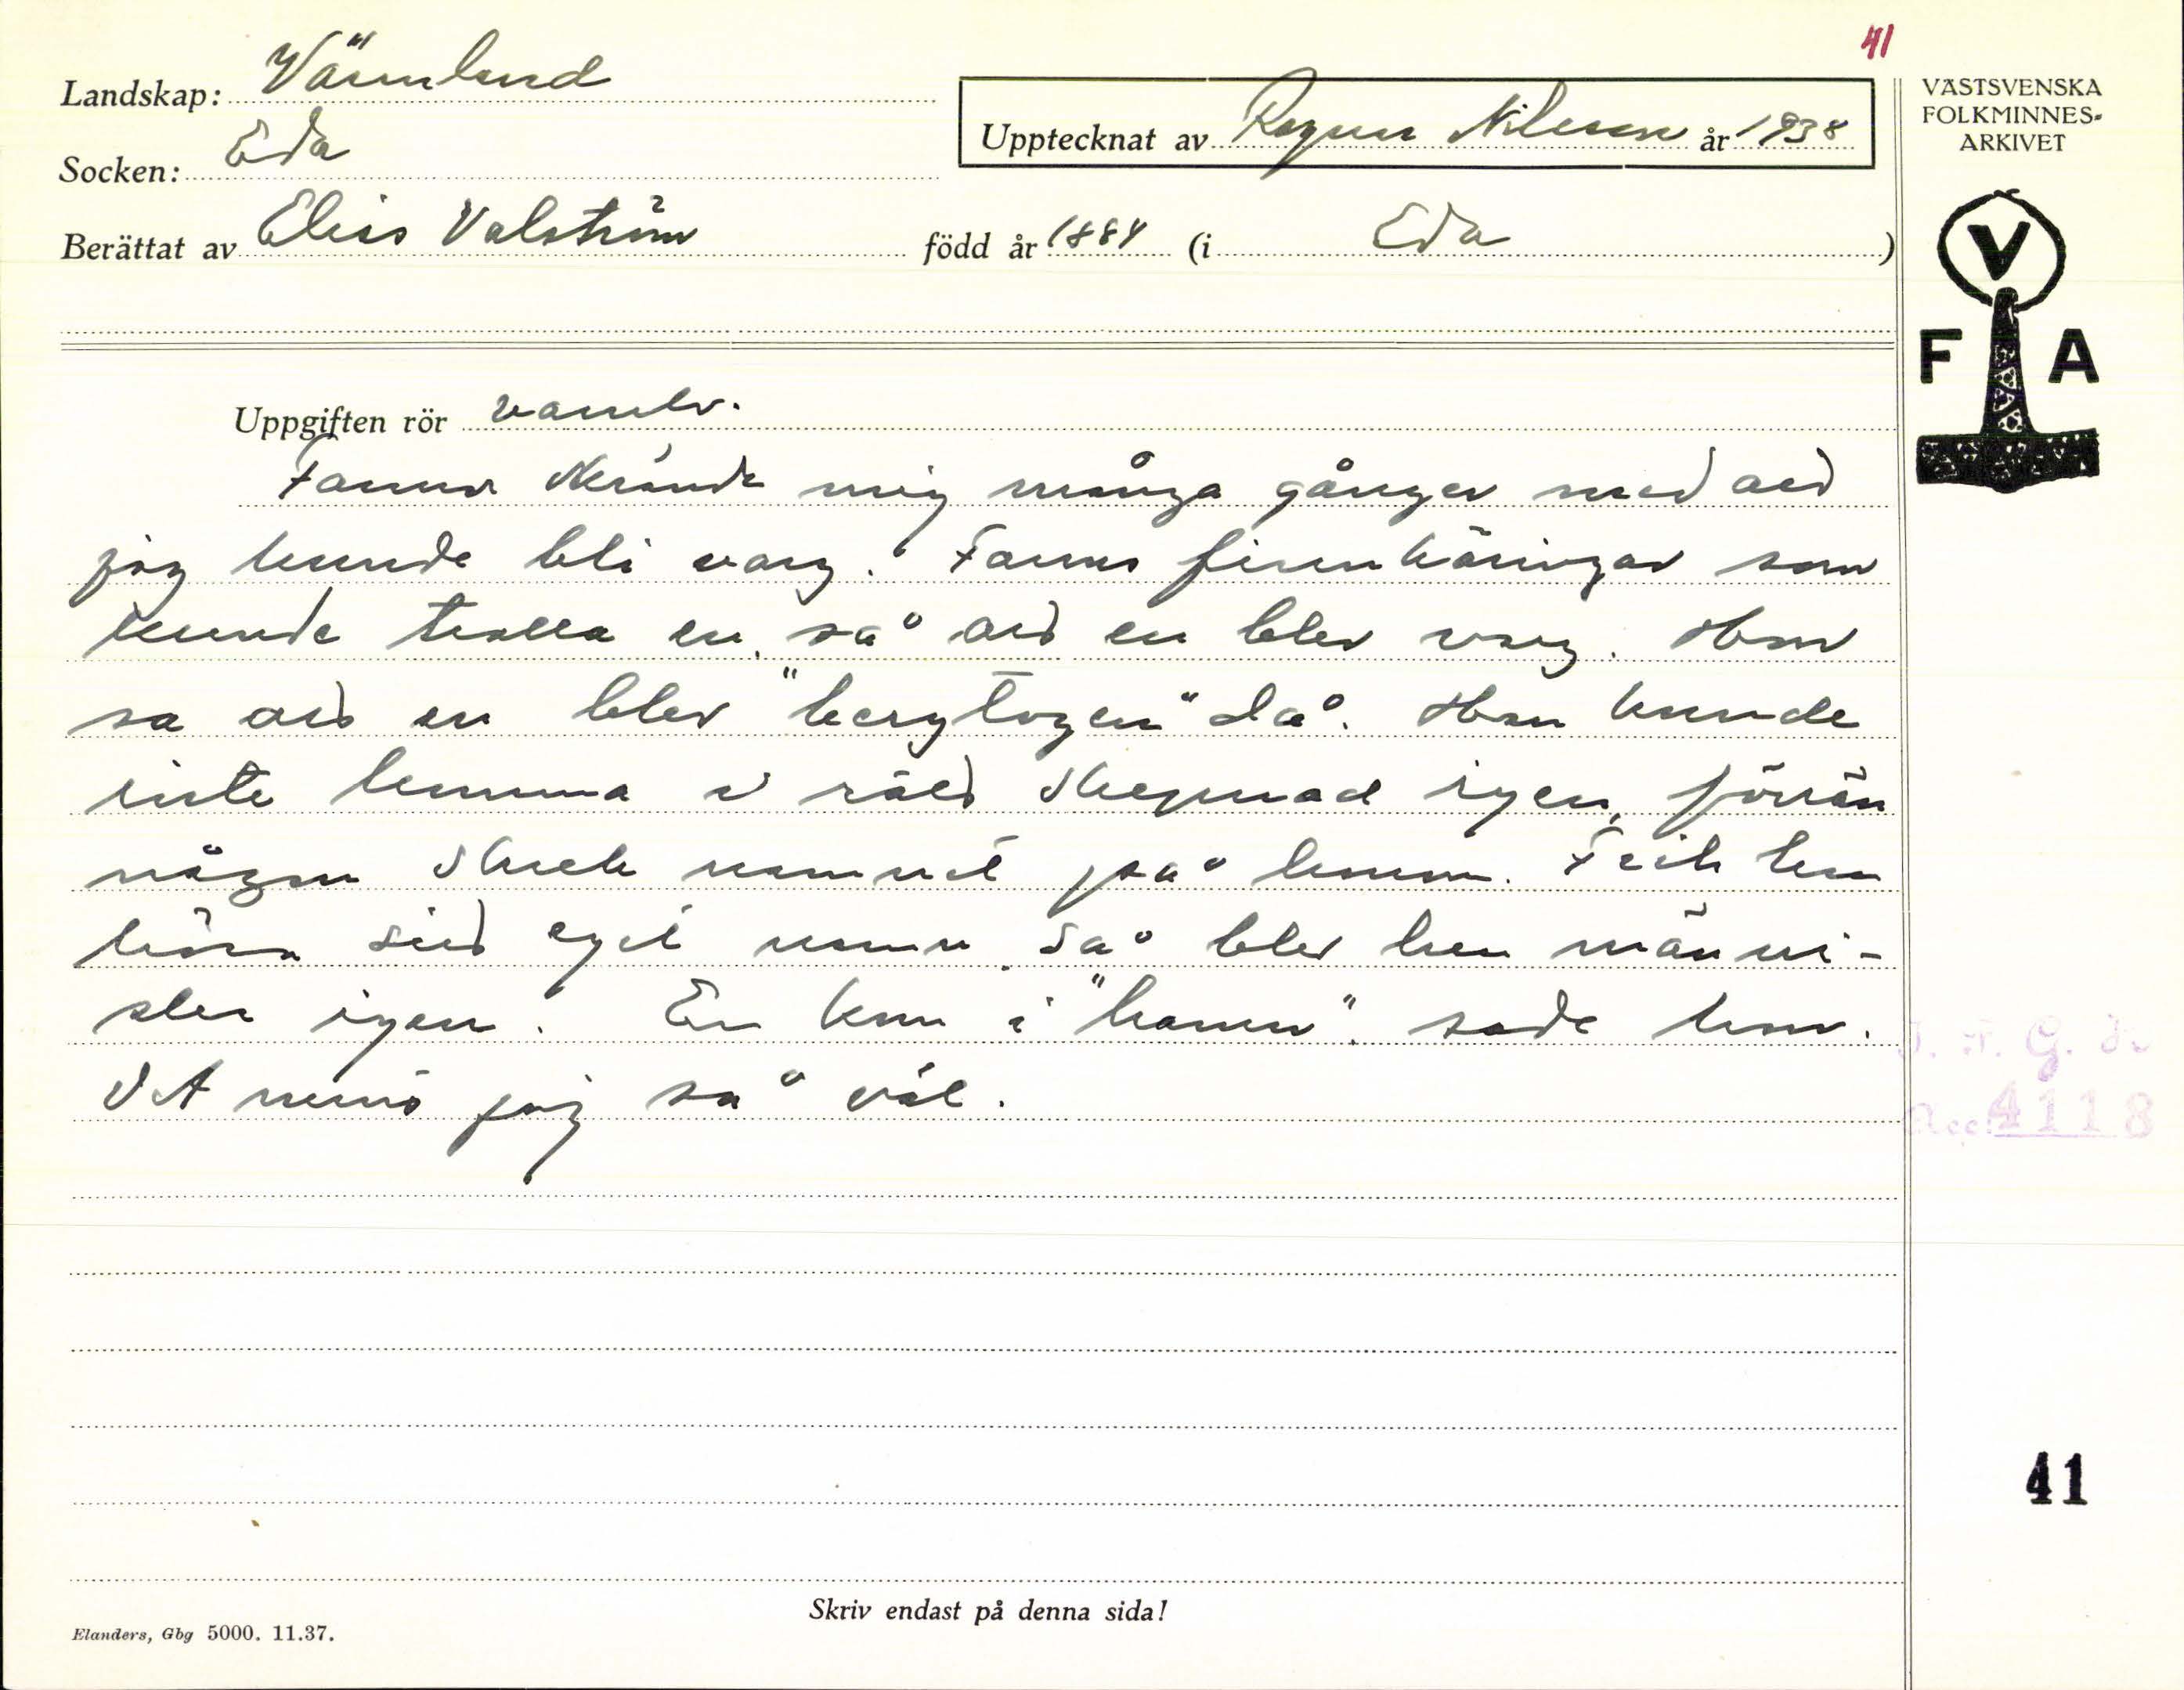 41
Landskap: Värmland
Upptecknat av Ragnar Nilsson år 1938
VÄSTSVENSKA
FOLKMINNES-
ARKIVET
Socken: Eda
Berättat av Elias Valström född år 1884 (i Eda)
V
F A
Uppgiften rör varulv.
Farmor skrämde mig många gånger med att
jag kunde bli varg. Fanns finnkäringar som
kunde trolla en, så att en blev varg. Hon
sa att en blev "bergtagen" då. Han kunde
inte komma i rätt skepnad igen, förrän
någon skrek namnet på honom. Fick han
höra sitt eget namn, så blev han männi-
ska igen. En kom i "hamn", sade hon.
Det minns jag så väl.
I. F. G. s.
Acc. 4118
41
Skriv endast på denna sida!
Elanders, Gbg 5000. 11.37.